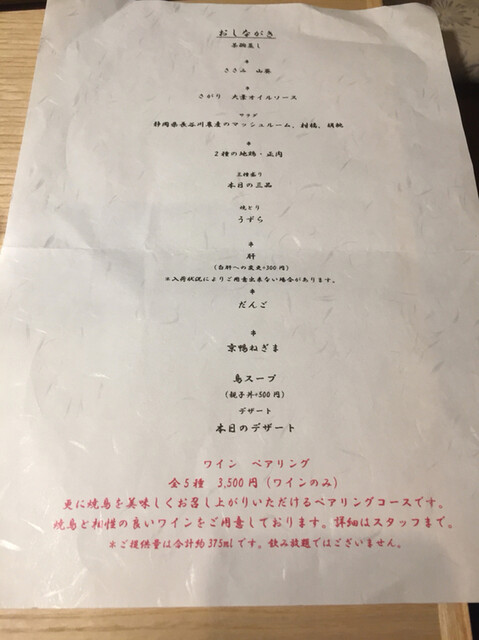 おしながき
茶碗蒸し
*
ささみ 山葵
*
さがり 大葉オイルソース
サラダ
静岡県長谷川農産のマッシュルーム、柑橘、胡桃
*
2種の地鶏・正肉
三種盛り
本日の三品
焼とり
うずら
*
肝
(白肝への変更+300円)
※入荷状況によりご用意出来ない場合があります。
*
だんご
*
京鴨ねぎま
鳥スープ
(親子丼+500円)
デザート
本日のデザート
ワイン ペアリング
全5種 3,500円(ワインのみ)
更に焼鳥を美味しくお召し上がりいただけるペアリングコースです。
焼鳥と相性の良いワインをご用意しております。詳細はスタッフまで。
*ご提供量は合計約375mlです。飲み放題ではございません。